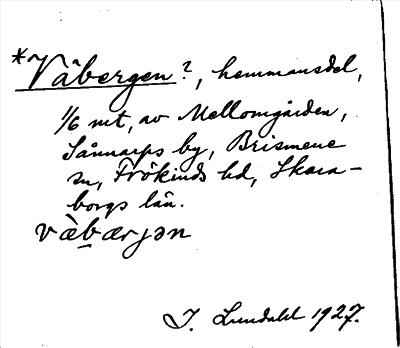 *Väbergen?, hemmansdel,
1/6 mt, av Mellomgården,
Sånnarps by, Brismene
sn, Frökinds hd, Skara-
borgs län.
væ̀bærjən
J. Lundahl 1927.